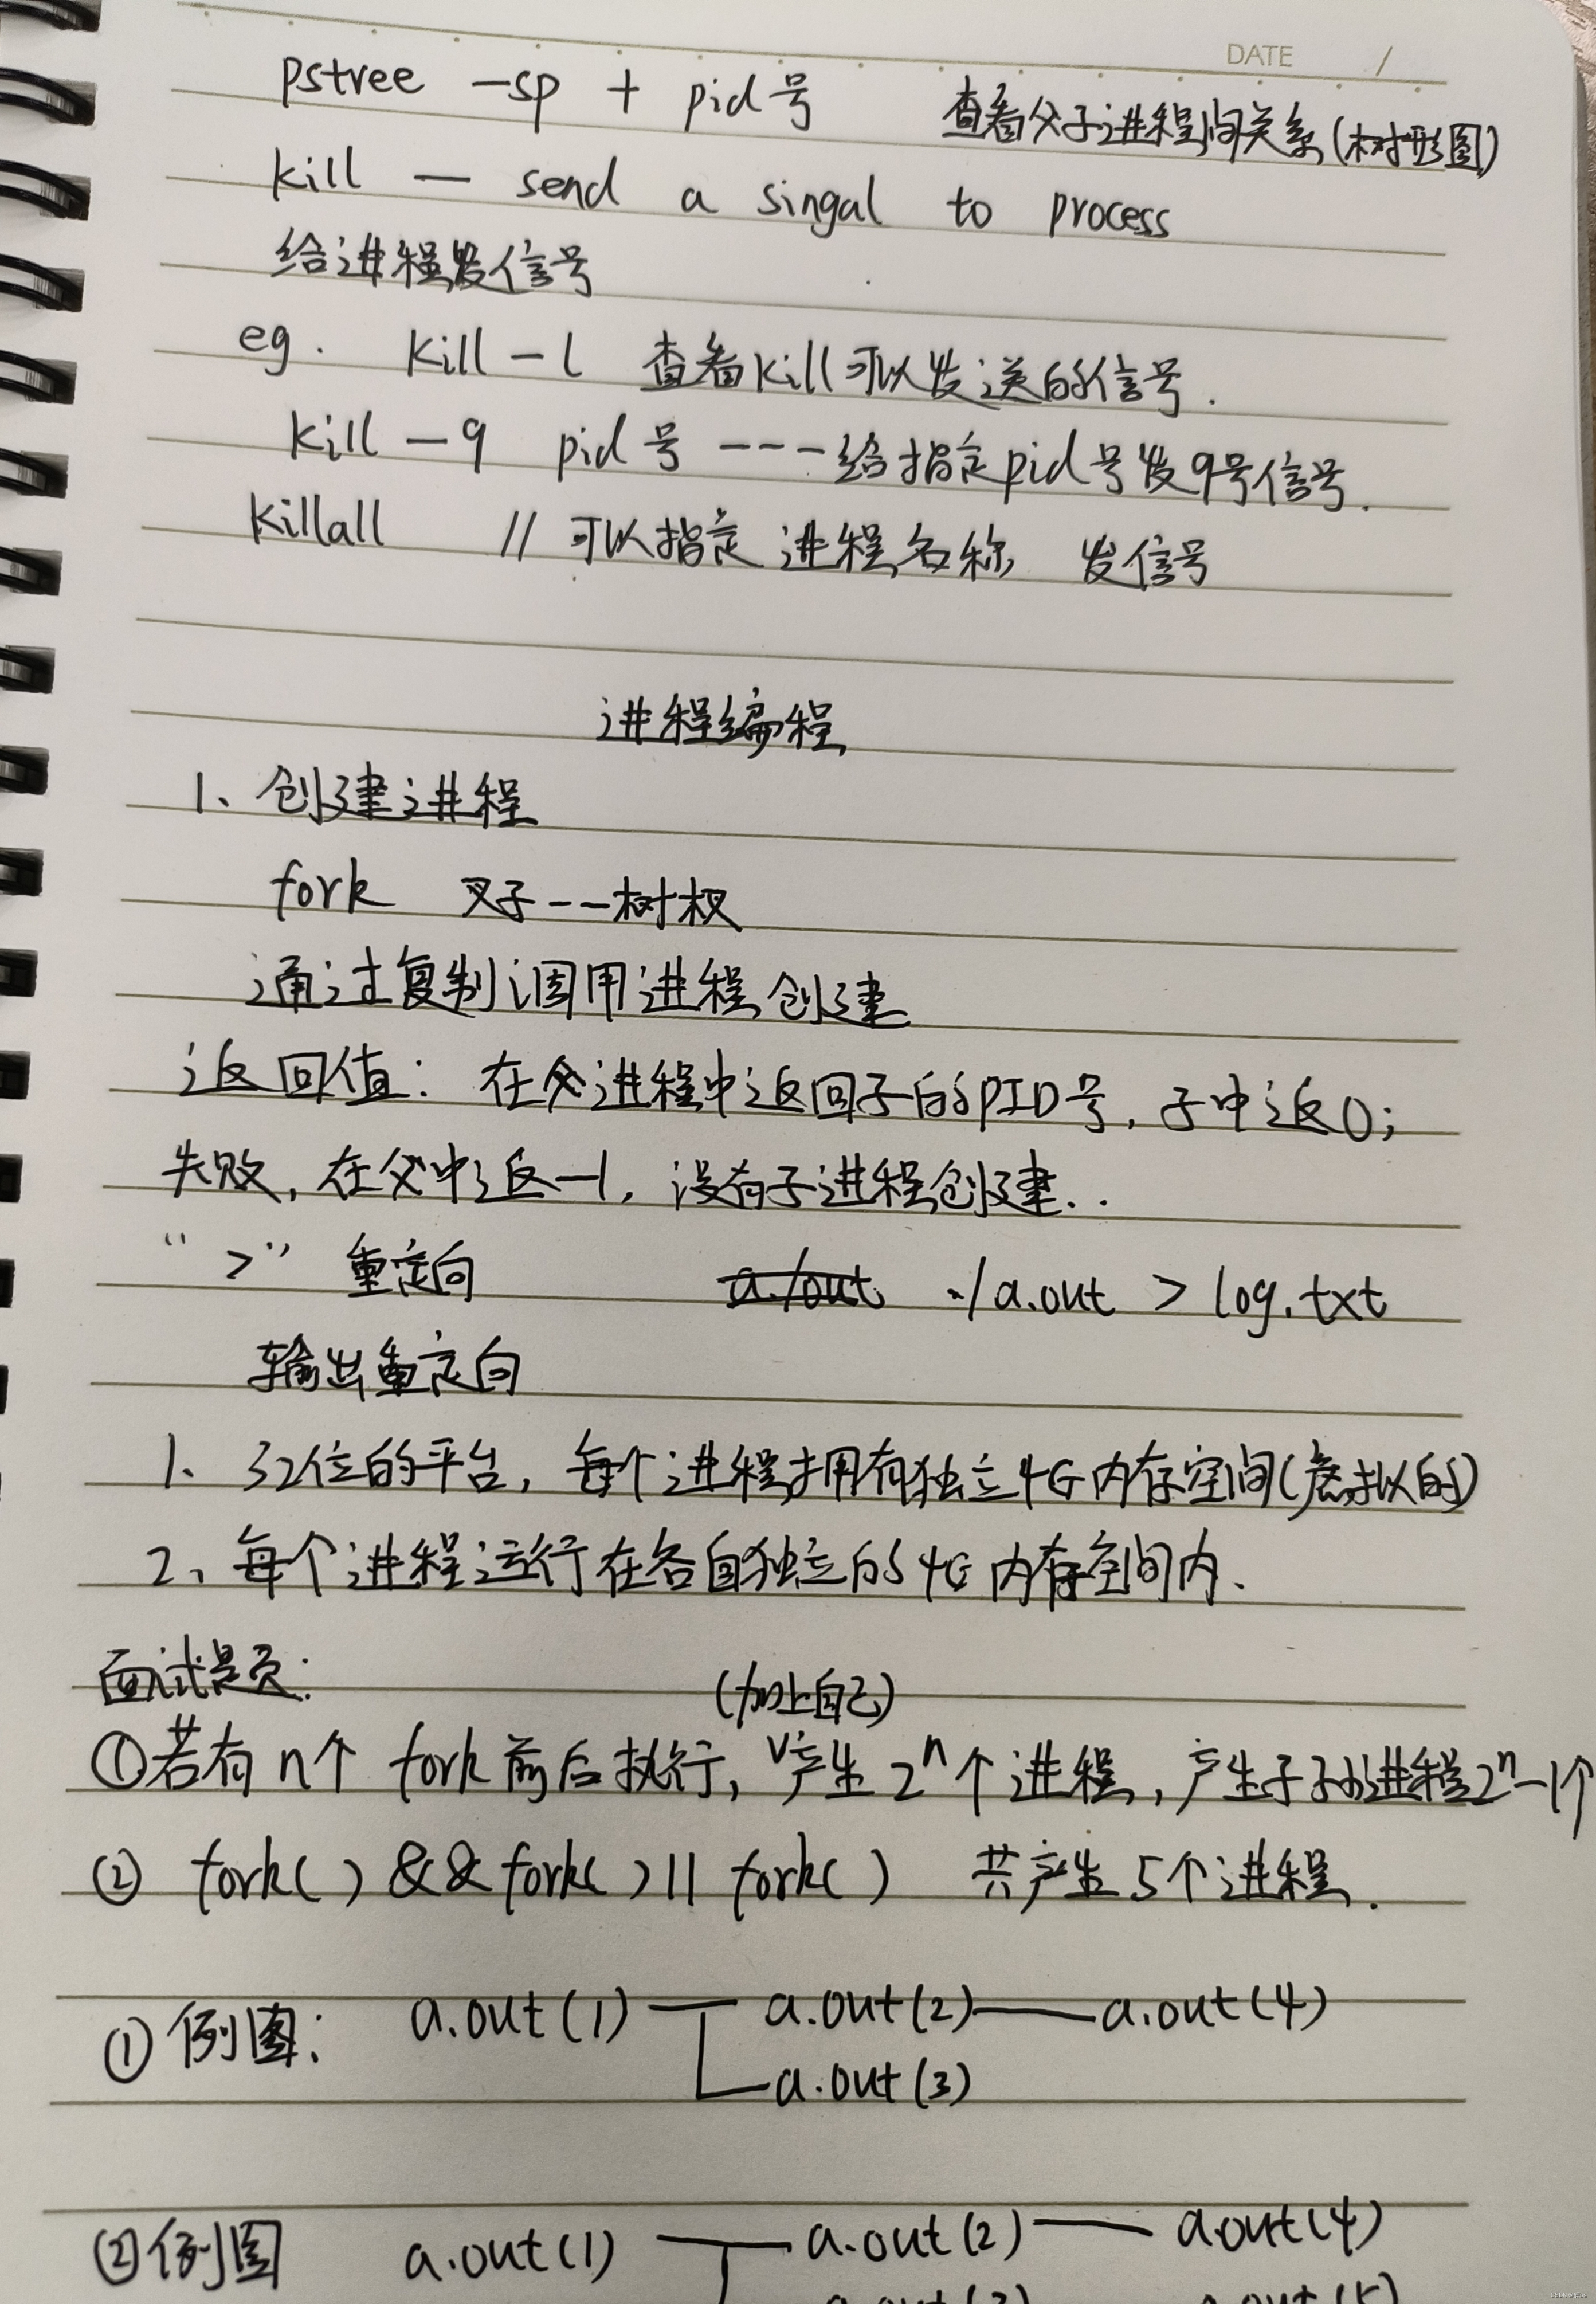 DATE /
pstree -sp + pid号 查看父子进程间关系(树形图)
kill — send a singal to process
给进程发信号
eg. kill -l 查看kill可以发送的信号.
kill -9 pid号 ---给指定pid号发9号信号.
killall // 可以指定 进程名称 发信号
进程编程
1、创建进程
fork 叉子--树杈
通过复制调用进程创建
返回值: 在父进程中返回子的PID号, 子中返0;
失败, 在父中返-1, 没有子进程创建..
“ > ” 重定向 a./out ./a.out > log.txt
输出重定向
1、32位的平台, 每个进程拥有独立4G内存空间(虚拟的)
2、每个进程运行在各自独立的4G内存空间内、
面试题:
(加上自己)
①若有n个 fork前后执行, 产生2ⁿ个进程, 产生子孙进程2ⁿ-1个
② fork( ) && fork( ) || fork( ) 共产生5个进程.
①例图: a.out(1) a.out(2) a.out(4)
a.out(3)
②例图 a.out(1) a.out(2) a.out(4)